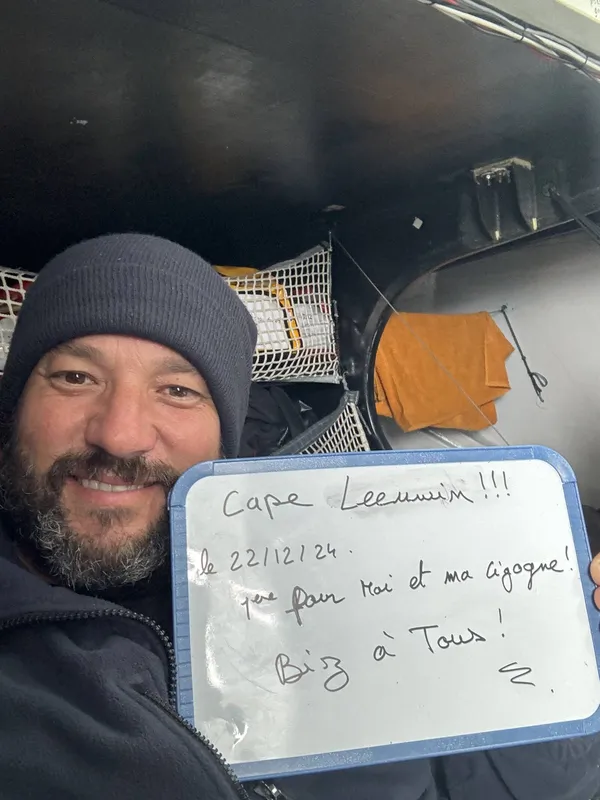 Cape Leeuwin !!!
le 22/12/24.
1ère pour Moi et ma cigogne!
Biz à Tous !